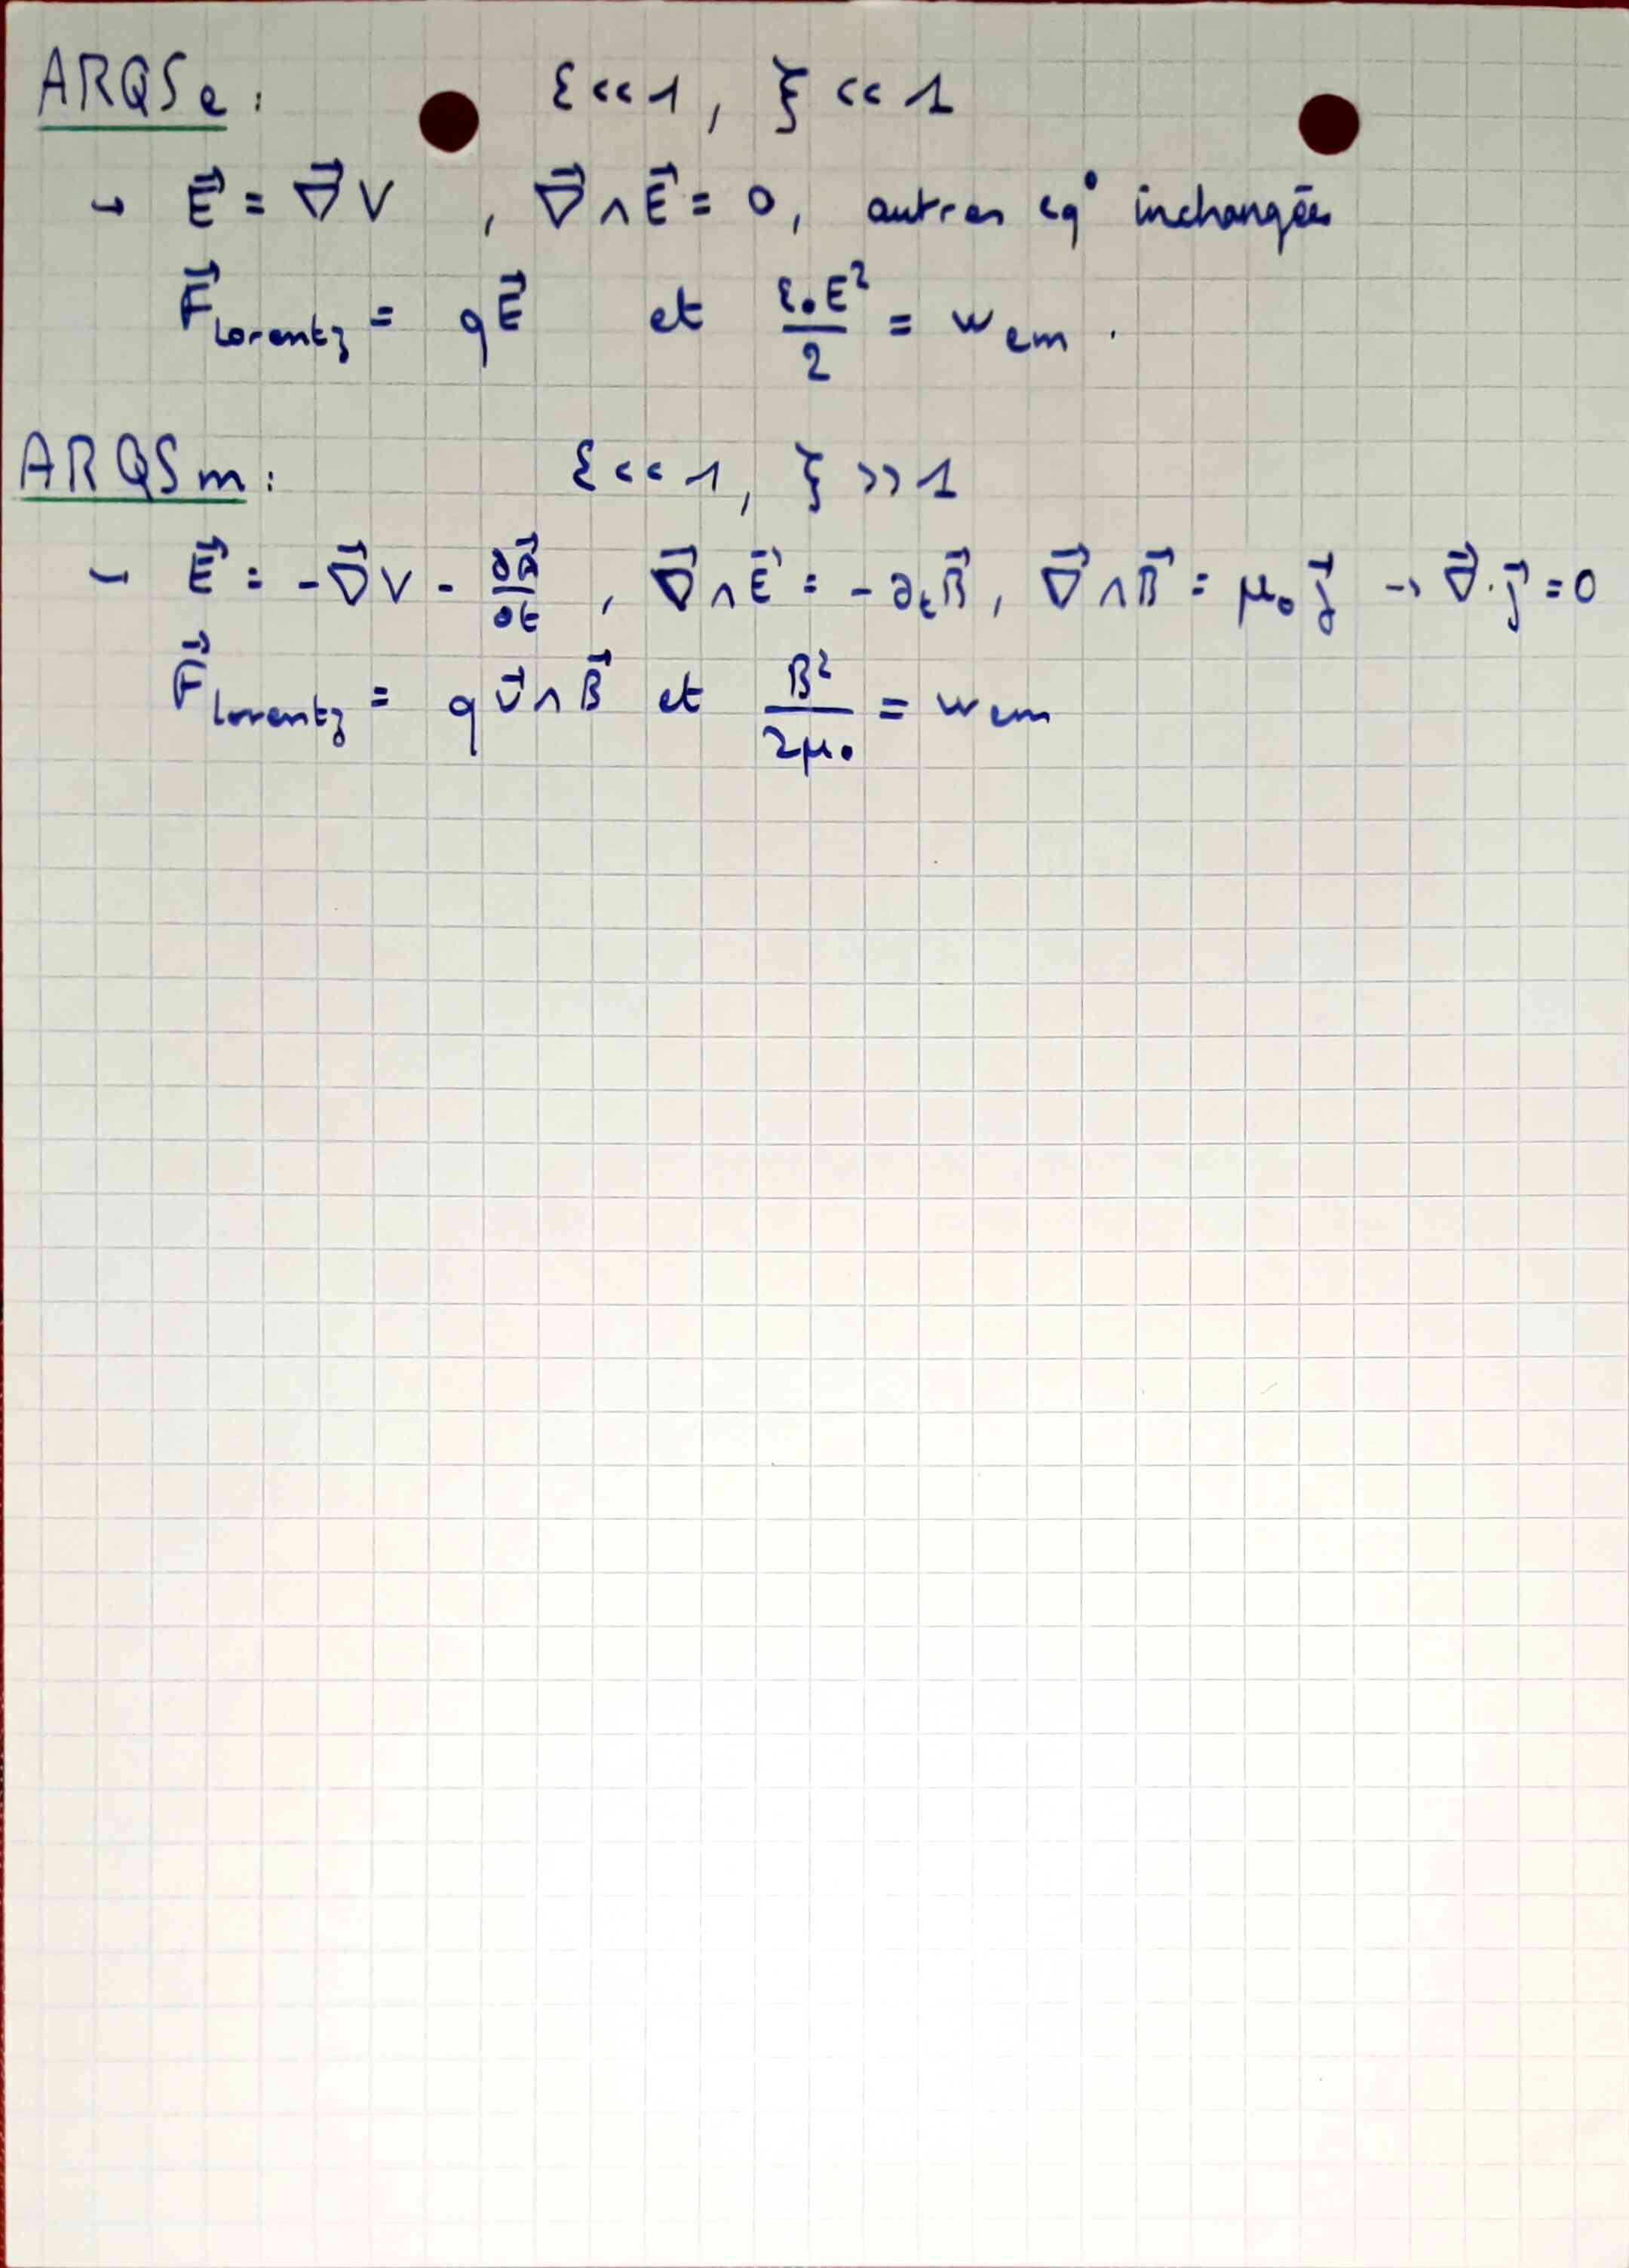 ARQSe : ε << 1 , ξ << 1
→ E⃗ = ∇⃗V , ∇⃗ ∧ E⃗ = 0, autres eq° inchangées
F⃗Lorentz = qE⃗ et ε₀E²/2 = wem .
ARQSm : ε << 1 , ξ >> 1
→ E⃗ = -∇⃗V - ∂A⃗/∂t , ∇⃗ ∧ E⃗ = -∂tB⃗ , ∇⃗ ∧ B⃗ = μ₀ j⃗ → ∇⃗ . j⃗ = 0
F⃗Lorentz = q v⃗ ∧ B⃗ et B²/2μ₀ = wem